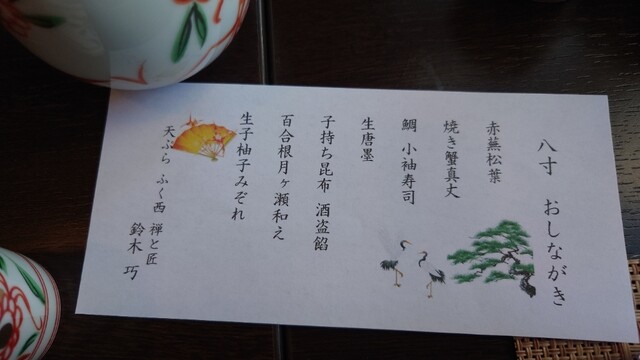 八寸 おしながき
赤蕪松葉
焼き蟹真丈
鯛 小袖寿司
生唐墨
子持ち昆布 酒盗餡
百合根月ヶ瀬和え
生子柚子みぞれ
天ぷら ふく西 禅と匠
鈴木 巧